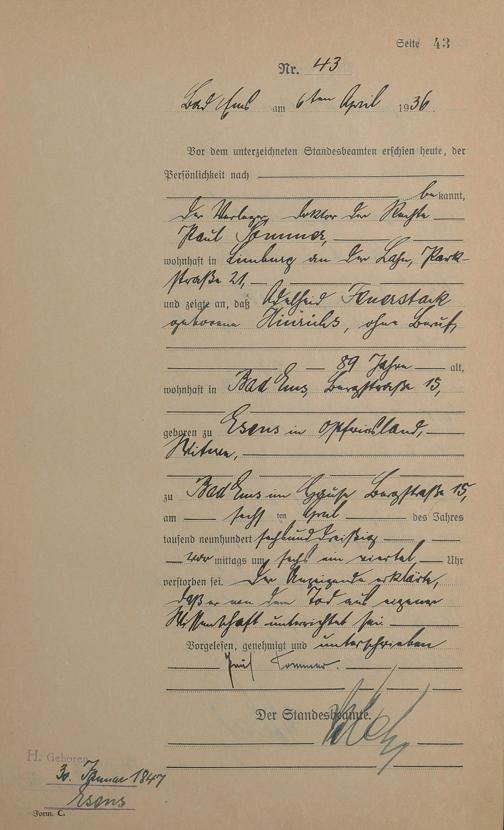 Seite 43
Nr. 43
Bad Ems am 6ten April 1936.
Vor dem unterzeichneten Standesbeamten erschien heute, der
Persönlichkeit nach
bekannt,
der Verleger Doktor der Rechte
Paul Sommer,
wohnhaft in Limburg an der Lahn, Park-
straße 21,
und zeigte an, daß Adelheid
geborene Hinrichs, ohne Beruf,
89 Jahre alt,
wohnhaft in Bad Ems, Bergstraße 15,
geboren zu Esens in Ostfriesland,
Witwe,
zu Bad Ems im Hause Bergstraße 15,
am sechsten April des Jahres
tausend neunhundert sechsunddreißig
vormittags um sechs ein viertel Uhr
verstorben sei. Der Anzeigende erklärte,
daß er von dem Tod aus eigener
Wissenschaft unterrichtet sei.
Vorgelesen, genehmigt und unterschrieben
Paul Sommer.
Der Standesbeamte.
H. Geboren
30. Januar 1847
Esens
Form. C.